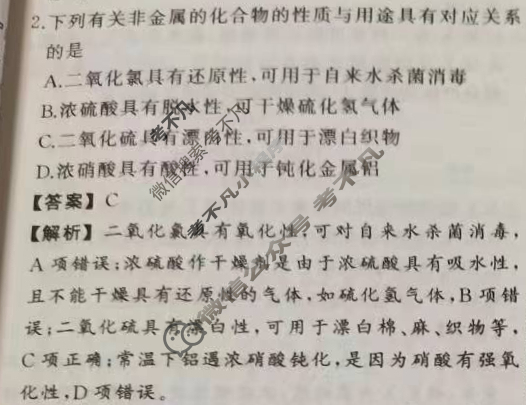 2.下列有关非金属的化合物的性质与用途具有对应关系
的是
A.二氧化氯具有还原性,可用于自来水杀菌消毒
B.浓硫酸具有脱水性,可干燥硫化氢气体
C.二氧化硫具有漂白性,可用于漂白织物
D.浓硝酸具有酸性,可用于钝化金属铝
【答案】C
【解析】二氧化氯具有氧化性,可对自来水杀菌消毒,
A 项错误;浓硫酸作干燥剂是由于浓硫酸具有吸水性,
且不能干燥具有还原性的气体,如硫化氢气体,B 项错
误;二氧化硫具有漂白性,可用于漂白棉、麻、织物等,
C 项正确;常温下铝遇浓硝酸钝化,是因为硝酸有强氧
化性,D 项错误。
考不凡
微信搜索 考不凡
微信公众号 考不凡